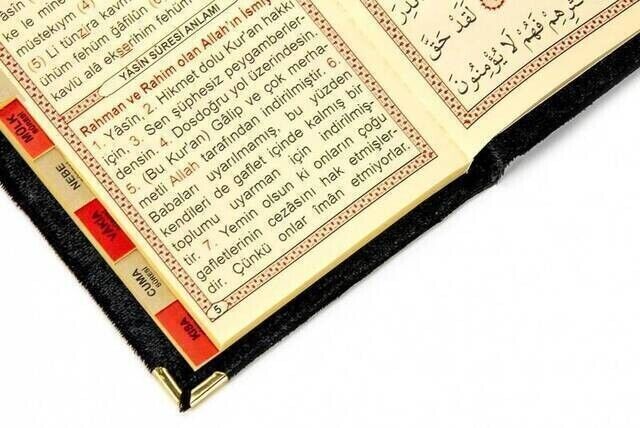 ke le mine
müstekıym (4)
(5) Li tünzira kavmen
ühüm fehüm ğâfilûn
kavlü alâ ekserihim fehüm
YÂSİN SÛRESİ ANLAMI
Rahman ve Rahim olan Allah'ın İsmiy
1. Yâsîn. 2. Hikmet dolu Kur'an hakkı
için, 3. Sen şüphesiz peygamberler-
densin. 4. Dosdoğru yol üzerindesin.
5. (Bu Kur'an) Gâlip ve çok merha-
metli Allah tarafından indirilmiştir. 6.
Babaları uyarılmamış, bu yüzden
kendileri de gaflet içinde kalmış bir
toplumu uyarman için indirilmiş-
tir. 7. Yemin olsun ki onların çoğu
gafletlerinin cezâsını hak etmişler-
dir. Çünkü onlar îmân etmiyorlar.
5
لَقَدْ حَقَّ
فَهُمْ لَا يُؤْمِنُونَ
MÜLK
SÛRESİ
NEBE
VAKIA
CUMA
SÛRESİ
KISA